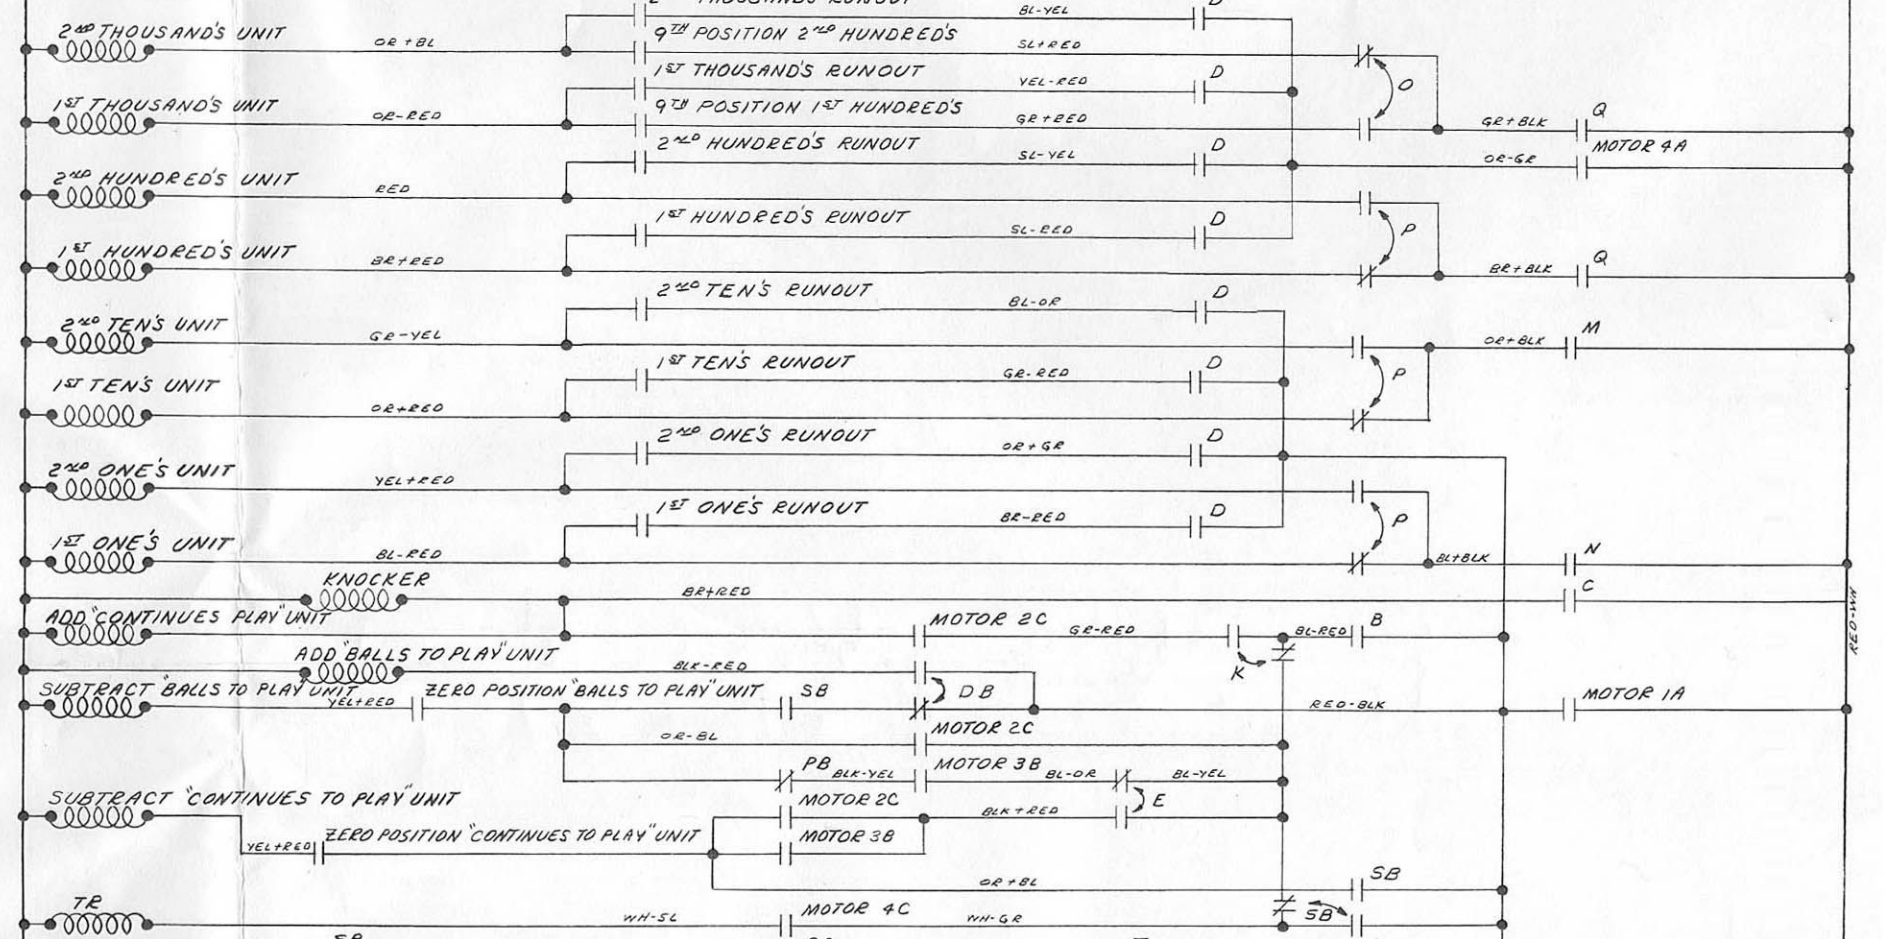 2ND THOUSAND'S RUNOUT
BL-YEL
D
2ND THOUSAND'S UNIT
OR+BL
9TH POSITION 2ND HUNDRED'S
SL+RED
1ST THOUSAND'S RUNOUT
YEL-RED
D
O
1ST THOUSAND'S UNIT
OR-RED
9TH POSITION 1ST HUNDRED'S
GR+RED
GR+BLK
Q
2ND HUNDRED'S RUNOUT
SL-YEL
D
OR-GR
MOTOR 4A
2ND HUNDRED'S UNIT
RED
1ST HUNDRED'S RUNOUT
SL-RED
D
P
1ST HUNDRED'S UNIT
BR+RED
BR+BLK
Q
2ND TEN'S RUNOUT
BL-OR
D
2ND TEN'S UNIT
GR-YEL
OR+BLK
M
1ST TEN'S RUNOUT
GR-RED
D
P
1ST TEN'S UNIT
OR+RED
2ND ONE'S RUNOUT
OR+GR
D
2ND ONE'S UNIT
YEL+RED
1ST ONE'S RUNOUT
BR-RED
D
P
1ST ONE'S UNIT
BL-RED
BL+BLK
N
KNOCKER
BR+RED
C
RED-WH
ADD "CONTINUES PLAY" UNIT
MOTOR 2C
GR-RED
BL-RED
B
K
ADD "BALLS TO PLAY" UNIT
BLK-RED
DB
SUBTRACT "BALLS TO PLAY" UNIT
YEL+RED
ZERO POSITION "BALLS TO PLAY" UNIT
SB
RED-BLK
MOTOR 1A
OR-BL
MOTOR 2C
PB
BLK-YEL
MOTOR 3B
BL-OR
BL-YEL
SUBTRACT "CONTINUES TO PLAY" UNIT
MOTOR 2C
BLK+RED
E
YEL+RED
ZERO POSITION "CONTINUES TO PLAY" UNIT
MOTOR 3B
OR+BL
SB
TR
WH-SL
MOTOR 4C
WH-GR
SB